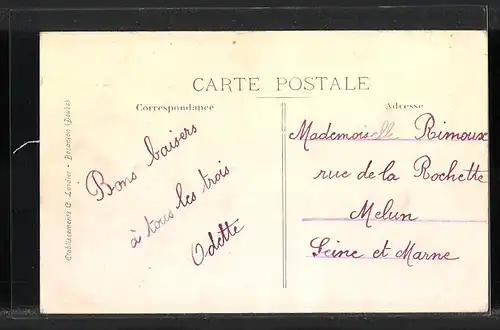 CARTE POSTALE
Correspondance
Adresse
Bons baisers
à tous les trois
Odette
Mademoiselle Rimoux
rue de la Rochette
Melun
Seine et Marne
Etablissements C. Lardier - Besançon (Doubs)